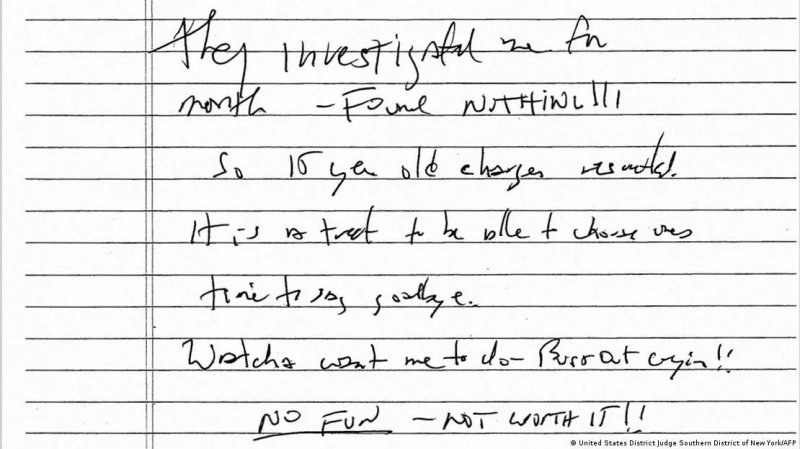 They investigated me for
month – Found NOTHING!!!
So 15 year old charges resulted.
It is a treat to be able to choose ones
time to say goodbye.
Watcha want me to do – Burst out cryin!!
NO FUN – NOT WORTH IT!!
© United States District Judge Southern District of New York/AFP